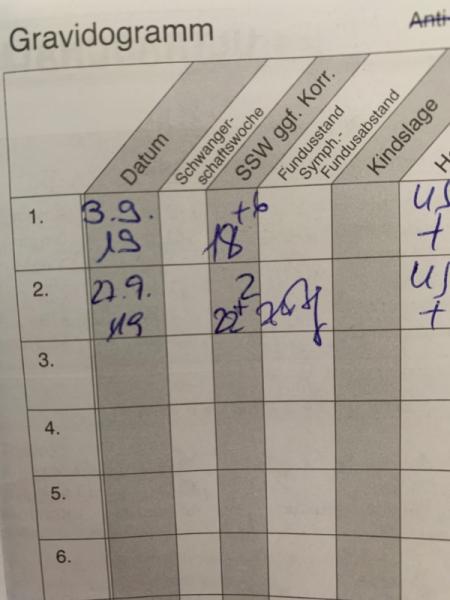 Gravidogramm
Anti-
Datum
Schwanger-
schaftswoche
SSW ggf. Korr.
Fundusstand
Symph.-
Fundusabstand
Kindslage
1.
3.9.
19
18+6
US
+
2.
27.9.
19
22+2
US
+
3.
4.
5.
6.